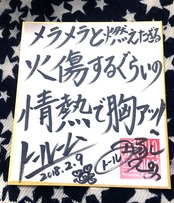 メラメラと燃えたぎる
火傷するぐらいの
情熱で胸アツ!
トールームー
2018.2.9
トール